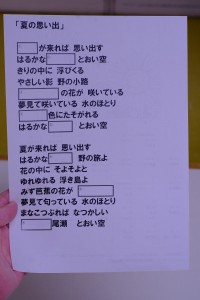 「夏の思い出」
が来れば 思い出す
はるかな とおい空
きりの中に 浮びくる
やさしい影 野の小路
の花が 咲いている
夢見て咲いている 水のほとり
色にたそがれる
はるかな とおい空
夏が来れば 思い出す
はるかな 野の旅よ
花の中に そよそよと
ゆれゆれる 浮き島よ
みず芭蕉の花が
夢見て匂っている 水のほとり
まなこつぶれば なつかしい
尾瀬 とおい空